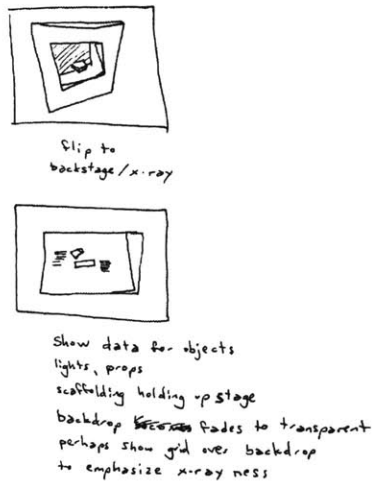 flip to
backstage/x-ray
Show data for objects
lights, props
scaffolding holding up stage
backdrop fades to transparent
perhaps show grid over backdrop
to emphasize x-ray ness